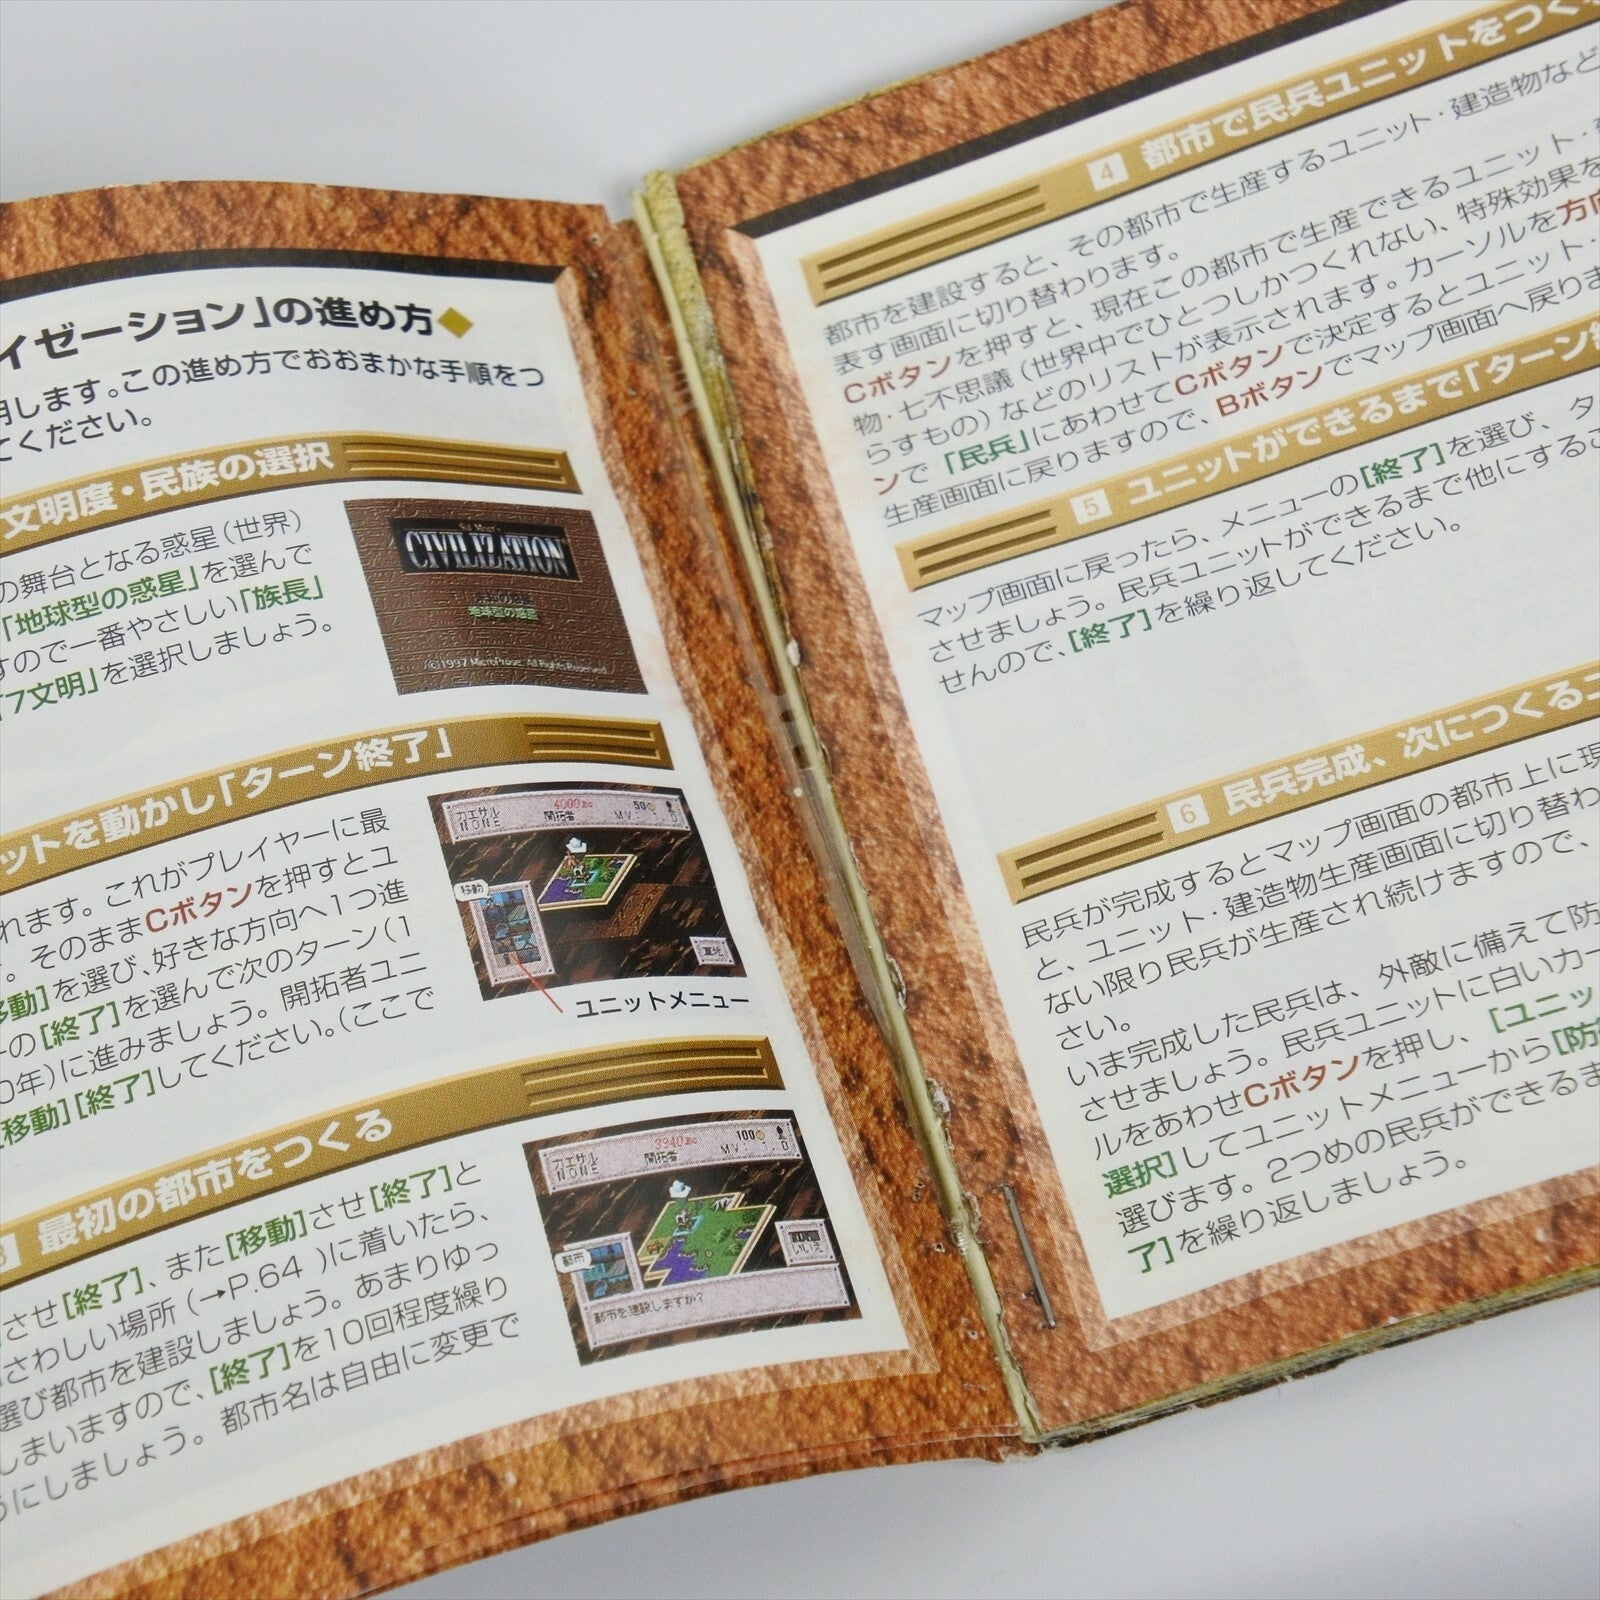 イゼーション」の進め方◆
明します。この進め方でおおまかな手順をつ
てください。
文明度・民族の選択
の舞台となる惑星（世界）
「地球型の惑星」を選んで
すので一番やさしい「族長」
「7文明」を選択しましょう。
Sid Meier's
CIVILIZATION
未知の惑星
地球型の惑星
(C)1997 MicroProse. All Rights Reserved
ットを動かし「ターン終了」
れます。これがプレイヤーに最
。そのままCボタンを押すとユ
移動]を選び、好きな方向へ1つ進
ーの[終了]を選んで次のターン（1
0年）に進みましょう。開拓者ユニ
[移動][終了]してください。（ここで
カエサル 4000BC 50
NONE 開拓者 MV: 1.0
移動
ユニットメニュー
3 最初の都市をつくる
させ[終了]、また[移動]させ[終了]と
さわしい場所（→P.64 ）に着いたら、
選び都市を建設しましょう。あまりゆっ
しまいますので、[終了]を10回程度繰り
うにしましょう。都市名は自由に変更で
カエサル 3940BC 100
NONE 開拓者 MV: 1.0
都市
いいえ
都市を建設しますか?
4 都市で民兵ユニットをつく
都市を建設すると、その都市で生産するユニット・建造物など
表す画面に切り替わります。
Cボタンを押すと、現在この都市で生産できるユニット・
物・七不思議（世界中でひとつしかつくれない、特殊効果を
らすもの）などのリストが表示されます。カーソルを方向
ンで「民兵」にあわせてCボタンで決定するとユニット・
生産画面に戻りますので、Bボタンでマップ画面へ戻りま
5 ユニットができるまで「ターン終
マップ画面に戻ったら、メニューの[終了]を選び、タ
させましょう。民兵ユニットができるまで他にするこ
せんので、[終了]を繰り返してください。
6 民兵完成、次につくるユ
民兵が完成するとマップ画面の都市上に現
と、ユニット・建造物生産画面に切り替わ
ない限り民兵が生産され続けますので、
さい。
いま完成した民兵は、外敵に備えて防
させましょう。民兵ユニットに白いカー
ルをあわせCボタンを押し、[ユニッ
選択]してユニットメニューから[防
選びます。2つめの民兵ができるま
了]を繰り返しましょう。